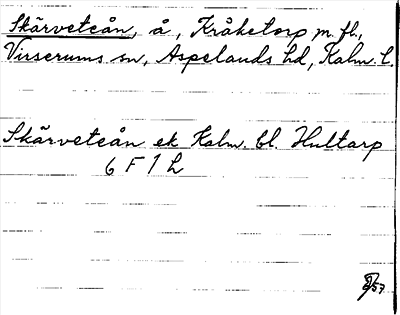 Skärveteån, å, Kråketorp m. fl.,
Virserums sn, Aspelands hd, Kalm. l.
Skärveteån ek Kalm. bl. Hultarp
6 F 1 h
57